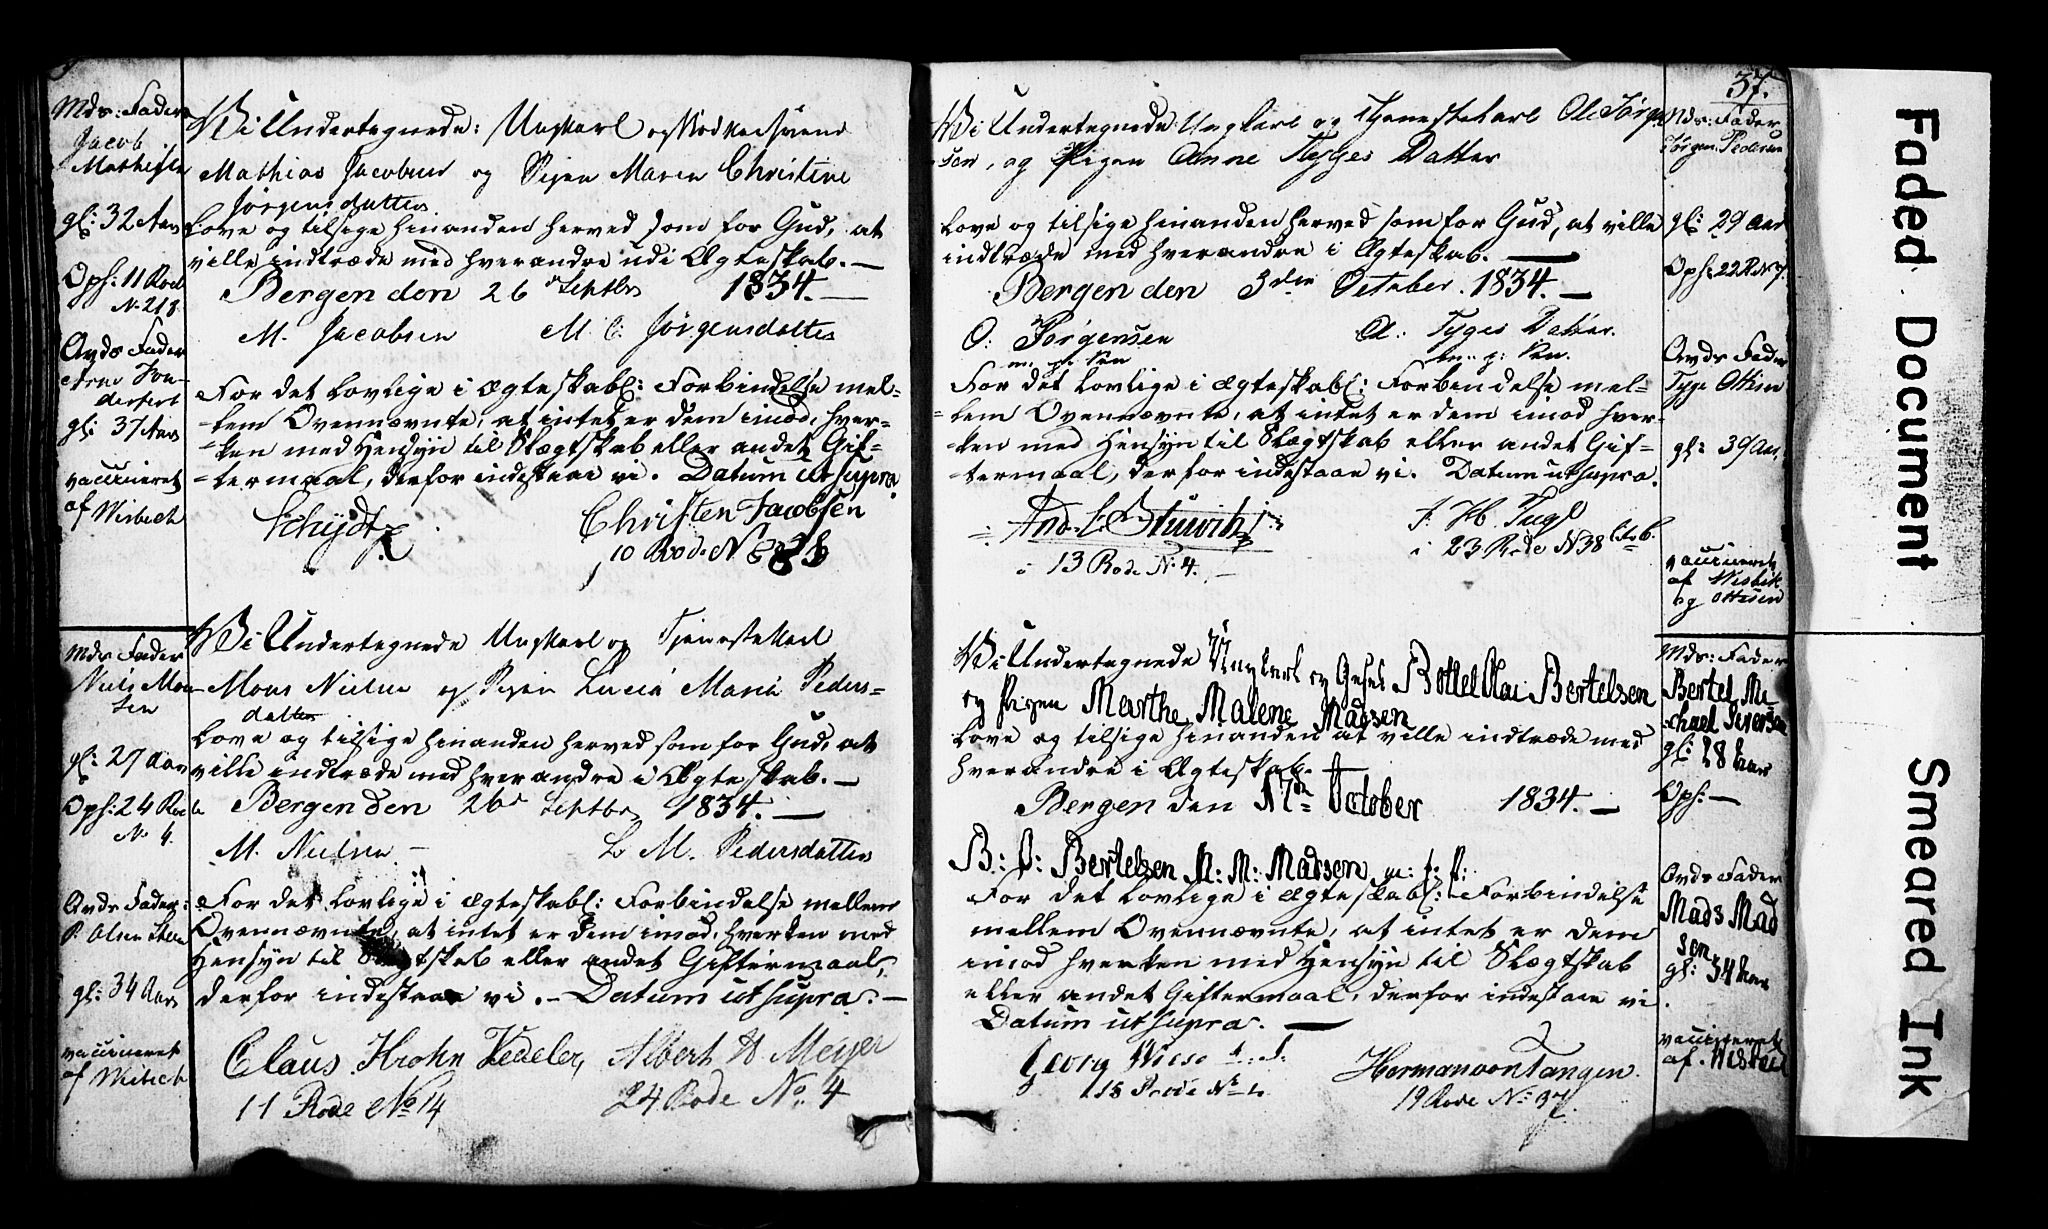 Mds: Fader
Jacob
Mathisen
gl: 32 Aar
Oph: 11 Rode
No 218
Brds Fader
Arne
gl: 37 Aar
vaccineret
af Wisbech
Vi Undertegnede: Ungkarl og Svend
Mathias Jacobsen og Pigen Maren Christine
Jørgensdatter
Love og tilsige hinanden herved som for Gud, at
ville indtræde med hverandre udi Ægteskab. —
Bergen den 26de Septbr 1834. —
M. Jacobsen M. C: Jørgensdatter
For det Lovlige i Ægteskabl: Forbindelse mel-
-lem Ovennævnte, at intet er dem imod, hver-
-ken med Hensyn til Slægtskab eller andet Gif-
-termaal, derfor indestaae vi. Datum ut supra.
Schjdt Christen Jacobsen
10 Rode No
Mds Fader
Niels Mon-
sen
gl: 27 Aar
Oph: 24 Rode
No 4.
Brds Fader:
P. Olsen
gl: 34 Aar
vaccineret
af Wisbech
Vi Undertegnede Ungkarl og Tjenestekarl
Mons Nielsen og Pigen Lucia Maria Peders-
datter
Love og tilsige hinanden herved som for Gud, at
ville indtræde med hverandre i Ægteskab. —
Bergen den 26de Septbr 1834. —
M. Nielsen — L M. Pedersdatter
For det Lovlige i Ægteskabl: Forbindelse mellem
Ovennævnte, at intet er dem imod, hverken med
Hensyn til Slægtskab eller andet Giftermaal,
derfor indestaae vi. — Datum ut supra. —
Claus Krohn Vedeler, Albert H Meyer
11 Rode No 14 24 Rode No. 4
37.
Vi Undertegnede Ungkarl og Tjenestekarl Ole Jørgen-
sen, og Pigen Anne Tygges Datter
Love og tilsige hinanden herved som for Gud, at ville
indtræde med hverandre i Ægteskab. —
Bergen den 3die October 1834. —
O: Jørgensen A: Tyges Datter.
m. p. Pen m. p: Pen.
For det Lovlige i Ægteskabl: Forbindelse mel-
-lem Ovennævnte, at intet er dem imod hver-
-ken med Hensyn til Slægtskab eller andet Gif-
-termaal, derfor indestaae vi. Datum ut supra.
And. C. F. H.
i 13 Rode No. 4. i 23 Rode No 38
Mds: Fader
Jørgen Pedersen
gl: 29 Aar
Oph: 22 R No 7.
Brds Fader
Tyge Ottesen
gl: 39 Aar,
vaccineret
af Wisbech
og Ottesen
Vi Undertegnede Ungkarl og Bottel Olai Bertelsen
og Pigen Marthe Malene Madsen
Love og tilsige hinanden at ville indtræde med
hverandre i Ægteskab. —
Bergen den October 1834. —
B: O: Bertelsen M: M: Madsen m: f: P:
For det Lovlige i Ægteskabl: Forbindelse
mellem Ovennævnte, at intet er dem
imod hverken med Hensyn til Slægtskab
eller andet Giftermaal, derfor indestaae vi.
Datum ut supra. —
Georg Herman von Tangen.
18 Rode No 19 Rode No: 37.
Mds: Fader
Bertel Mi-
chael Iversen
gl: 28 Aar
Oph: —
Brds Fader
Mads Mad
sen,
gl: 34 Aar
vaccineret
af Wisbech
Faded Document
Smeared Ink